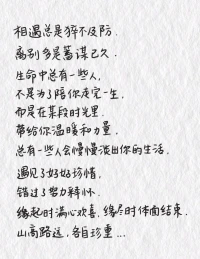 相遇总是猝不及防.
离别多是蓄谋已久.
生命中总有一些人,
不是为了陪你走完一生.
而是在某段时光里.
带给你温暖和力量.
总有一些人会慢慢淡出你的生活.
遇见了好好珍惜.
错过了努力释怀.
缘起时满心欢喜.缘尽时体面结束.
山高路远,各自珍重...